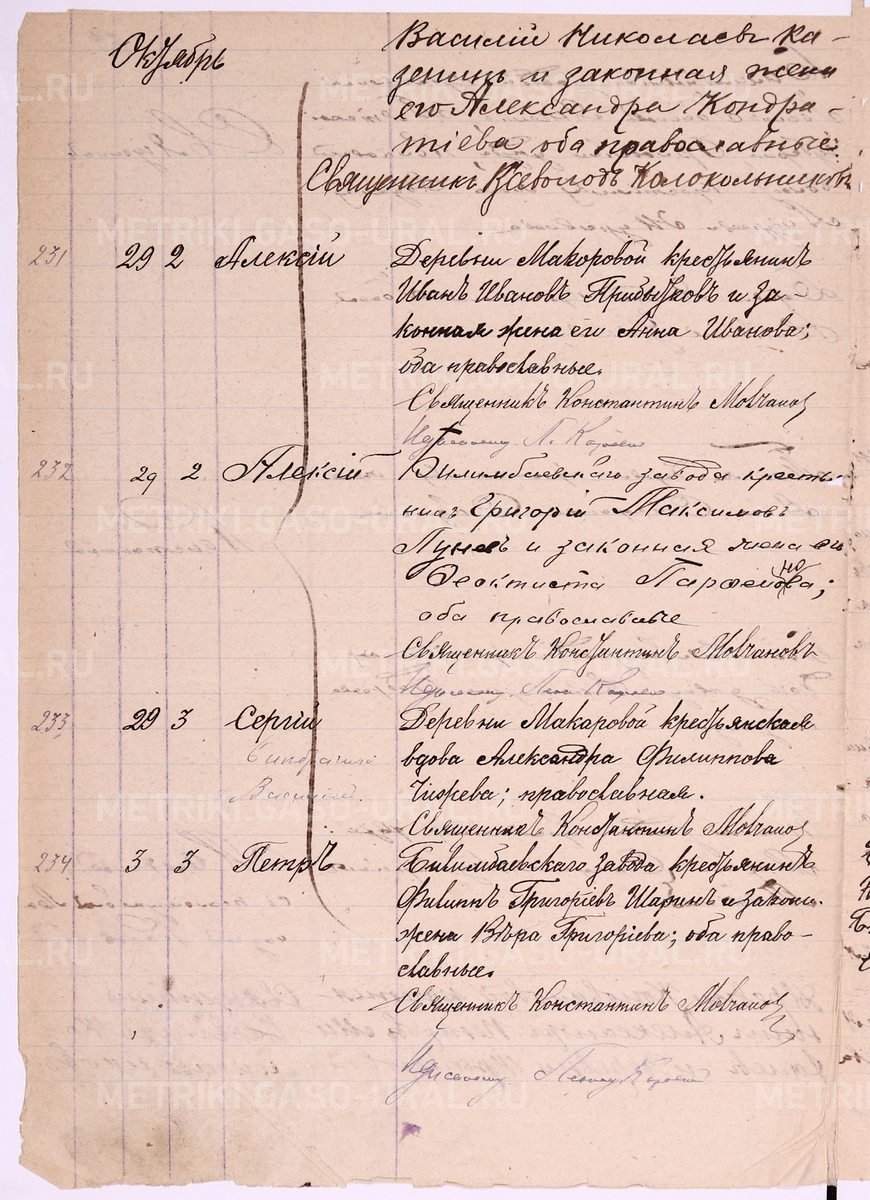 Октябрь
Василій Николаевъ Ка-
и законная жена
его Александра Кондра-
тіева оба православные.
Священникъ Всеволодъ Колокольниковъ
231 29 2 Алексій Деревни Макоровой крестьянинъ
Иванъ Ивановъ Прибытковъ и за-
конная жена его Анна Иванова;
оба православные.
Священникъ Константинъ Мовчановъ
232 29 2 Алексій Билимбаевскаго завода кресть-
нинъ Григорій Максимовъ
Луневъ и законная жена его
Феоктиста
оба православные
Священникъ Константинъ Мовчановъ
233 29 3 Сергій Деревни Макаровой крестьянская
вдова Александра Филиппова
православная.
Священникъ Константинъ Мовчановъ
234 3 3 Петръ Билимбаевскаго завода крестьянинъ
Филиппъ Григоріевъ Шаринъ и законн.
жена Вѣра Григоріева; оба право-
славные.
Священникъ Константинъ Мовчановъ
METRIKI.GASO-URAL.RU